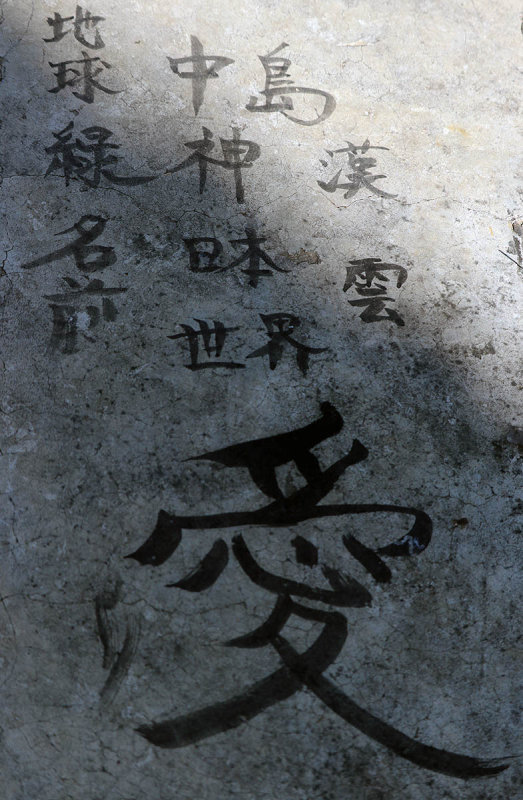 地球
緑
名前
中
神
日本
世界
島
漢
雲
愛